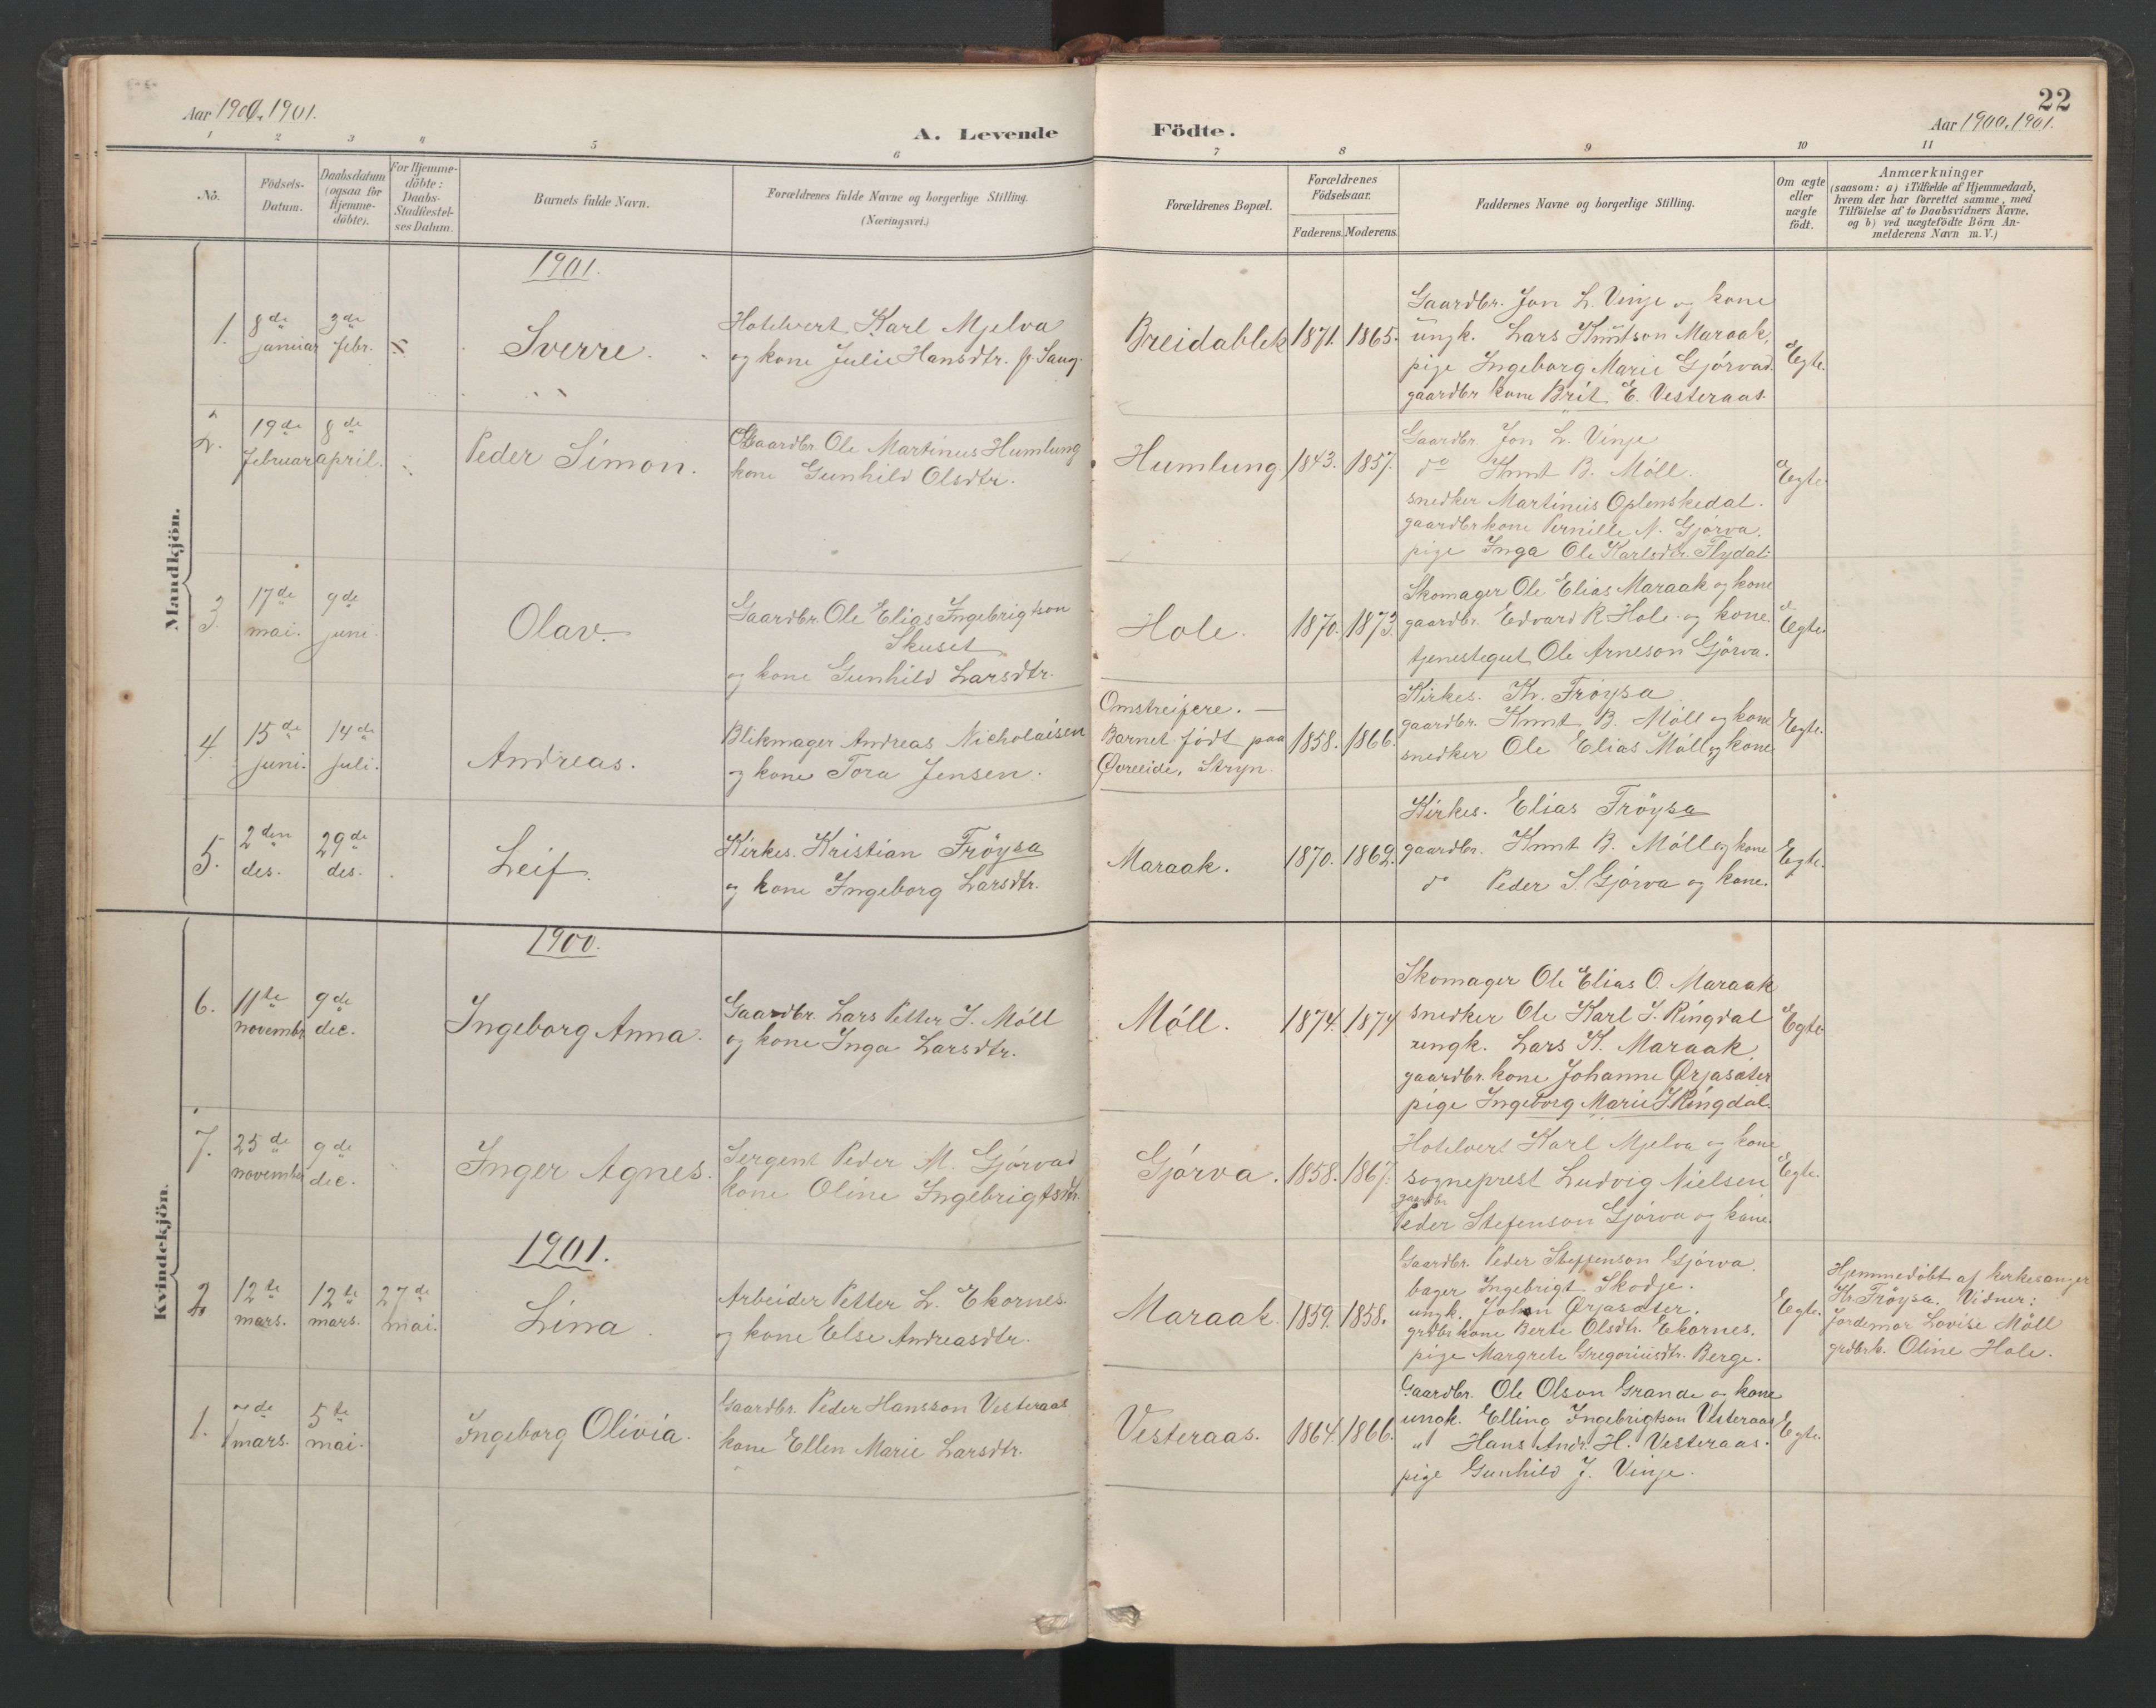 22
Aar 1900, 1901.
A. Levende Födte.
Aar 1900, 1901.
1 2 3 4 5 6 7 8 9 10 11
No.
Födsels-
Datum.
Daabsdatum
(ogsaa for
Hjemme-
döbte).
For Hjemme-
döbte:
Daabs-
Stadfæstel-
ses Datum.
Barnets fulde Navn.
Forældrenes fulde Navne og borgerlige Stilling.
(Næringsvei.)
Forældrenes Bopæl.
Forældrenes
Födselsaar.
Faderens. Moderens.
Faddernes Navne og borgerlige Stilling.
Om ægte
eller
uægte
födt.
Anmærkninger
(saasom: a) i Tilfælde af Hjemmedaab,
hvem der har forrettet samme, med
Tilföielse af to Daabsvidners Navne,
og b) ved uægtefödte Börn An-
melderens Navn m. V.)
Mandkjön.
1901.
1.
8de
januar
3de
febr.
Sverre.
Hotelvert Karl Mjelva
og kone Julie Hansdtr. f. Saug.
Breidablik
1871. 1865.
Gaardbr. Jon L. Vinje og kone
ungk. Lars Knutson Maraak,
pige Ingeborg Marie Gjörvad.
gaardbr kone Brit E. Vesteraas.
Egte.
2.
19de
februar
8de
april.
Peder Simon.
Gaardbr. Ole Martinus Humlung
kone Gunhild Olsdtr.
Humlung
1843. 1857.
Gaardbr. Jon L. Vinje
do Knut B. Möll.
snedker Martinus Oplenskedal.
gaardbrkone Pernille N. Gjörva.
pige Inga Ole Karlsdtr. Flydal.
Egte.
3.
17de
mai.
9de
juni.
Olav.
Gaardbr. Ole Elias Ingebrigtson
Skuset
og kone Gunhild Larsdtr.
Hole.
1870. 1873.
Skomager Ole Elias Maraak og kone
gaardbr. Edvard R. Hole og kone.
tjenestegut Ole Arneson Gjörva.
Egte.
4.
15de
juni.
14de
juli.
Andreas.
Blikmager Andreas Nicholaisen
og kone Tora Jensen.
Omstreifere. —
Barnet födt paa
Øvreeide, Stryn.
1858. 1866.
Kirkes. Kr. Fröysa
gaardbr. Knut B. Möll og kone
snedker Ole Elias Möll og kone
Egte.
5.
2den
des.
29de
des.
Leif.
Kirkes. Kristian Fröysa
og kone Ingeborg Larsdtr.
Maraak.
1870. 1862.
Kirkes. Elias Fröysa
gaardbr. Knut B. Möll og kone
do Peder S. Gjörva og kone.
Egte.
Kvindekjön.
1900.
6.
11te
novembr
9de
dec.
Ingeborg Anna.
Gaardbr. Lars Petter J. Möll
og kone Inga Larsdtr.
Möll.
1874. 1874
Skomager Ole Elias O. Maraak
snedker Ole Karl J. Ringdal
ungk. Lars K. Maraak
gaardbr. kone Johanne Ørjasæter
pige Ingeborg Marie J. Ringdal.
Egte.
7.
25de
novembr
9de
dec.
Inger Agnes.
Sergent Peder M. Gjörvad
kone Oline Ingebrigtsdtr.
Gjörva.
1858. 1867.
Hotelvert Karl Mjelva og kone
sogneprest Ludvig Nielsen
gaardbr
Peder Stefenson Gjörva og kone.
Egte.
1901.
2
12te
mars.
12te
mars.
27de
mai.
Lina.
Arbeider Petter L. Ekornes.
og kone Else Andreasdtr.
Maraak.
1859. 1858.
Gaardbr. Peder Steffenson Gjörva.
bager Ingebrigt Skodje.
ungk. Johan Ørjasæter.
grdbrkone Berte Olsdtr. Ekornes.
pige Margrete Gregoriusdtr. Berge.
Egte.
Hjemmedöbt af kirkesanger
Kr. Fröysa. Vidner:
Jordemor Lovise Möll
grdbrk. Oline Hole.
1.
mars.
5te
mai.
Ingeborg Olivia.
Gaardbr. Peder Hansson Vesteraas
kone Ellen Marie Larsdtr.
Vesteraas.
1864. 1866.
Gaardbr. Ole Olson Grande og kone
ungk. Elling Ingebrigtson Vesteraas
" Hans Andr. H. Vesteraas.
pige Gunhild J. Vinje.
Egte.